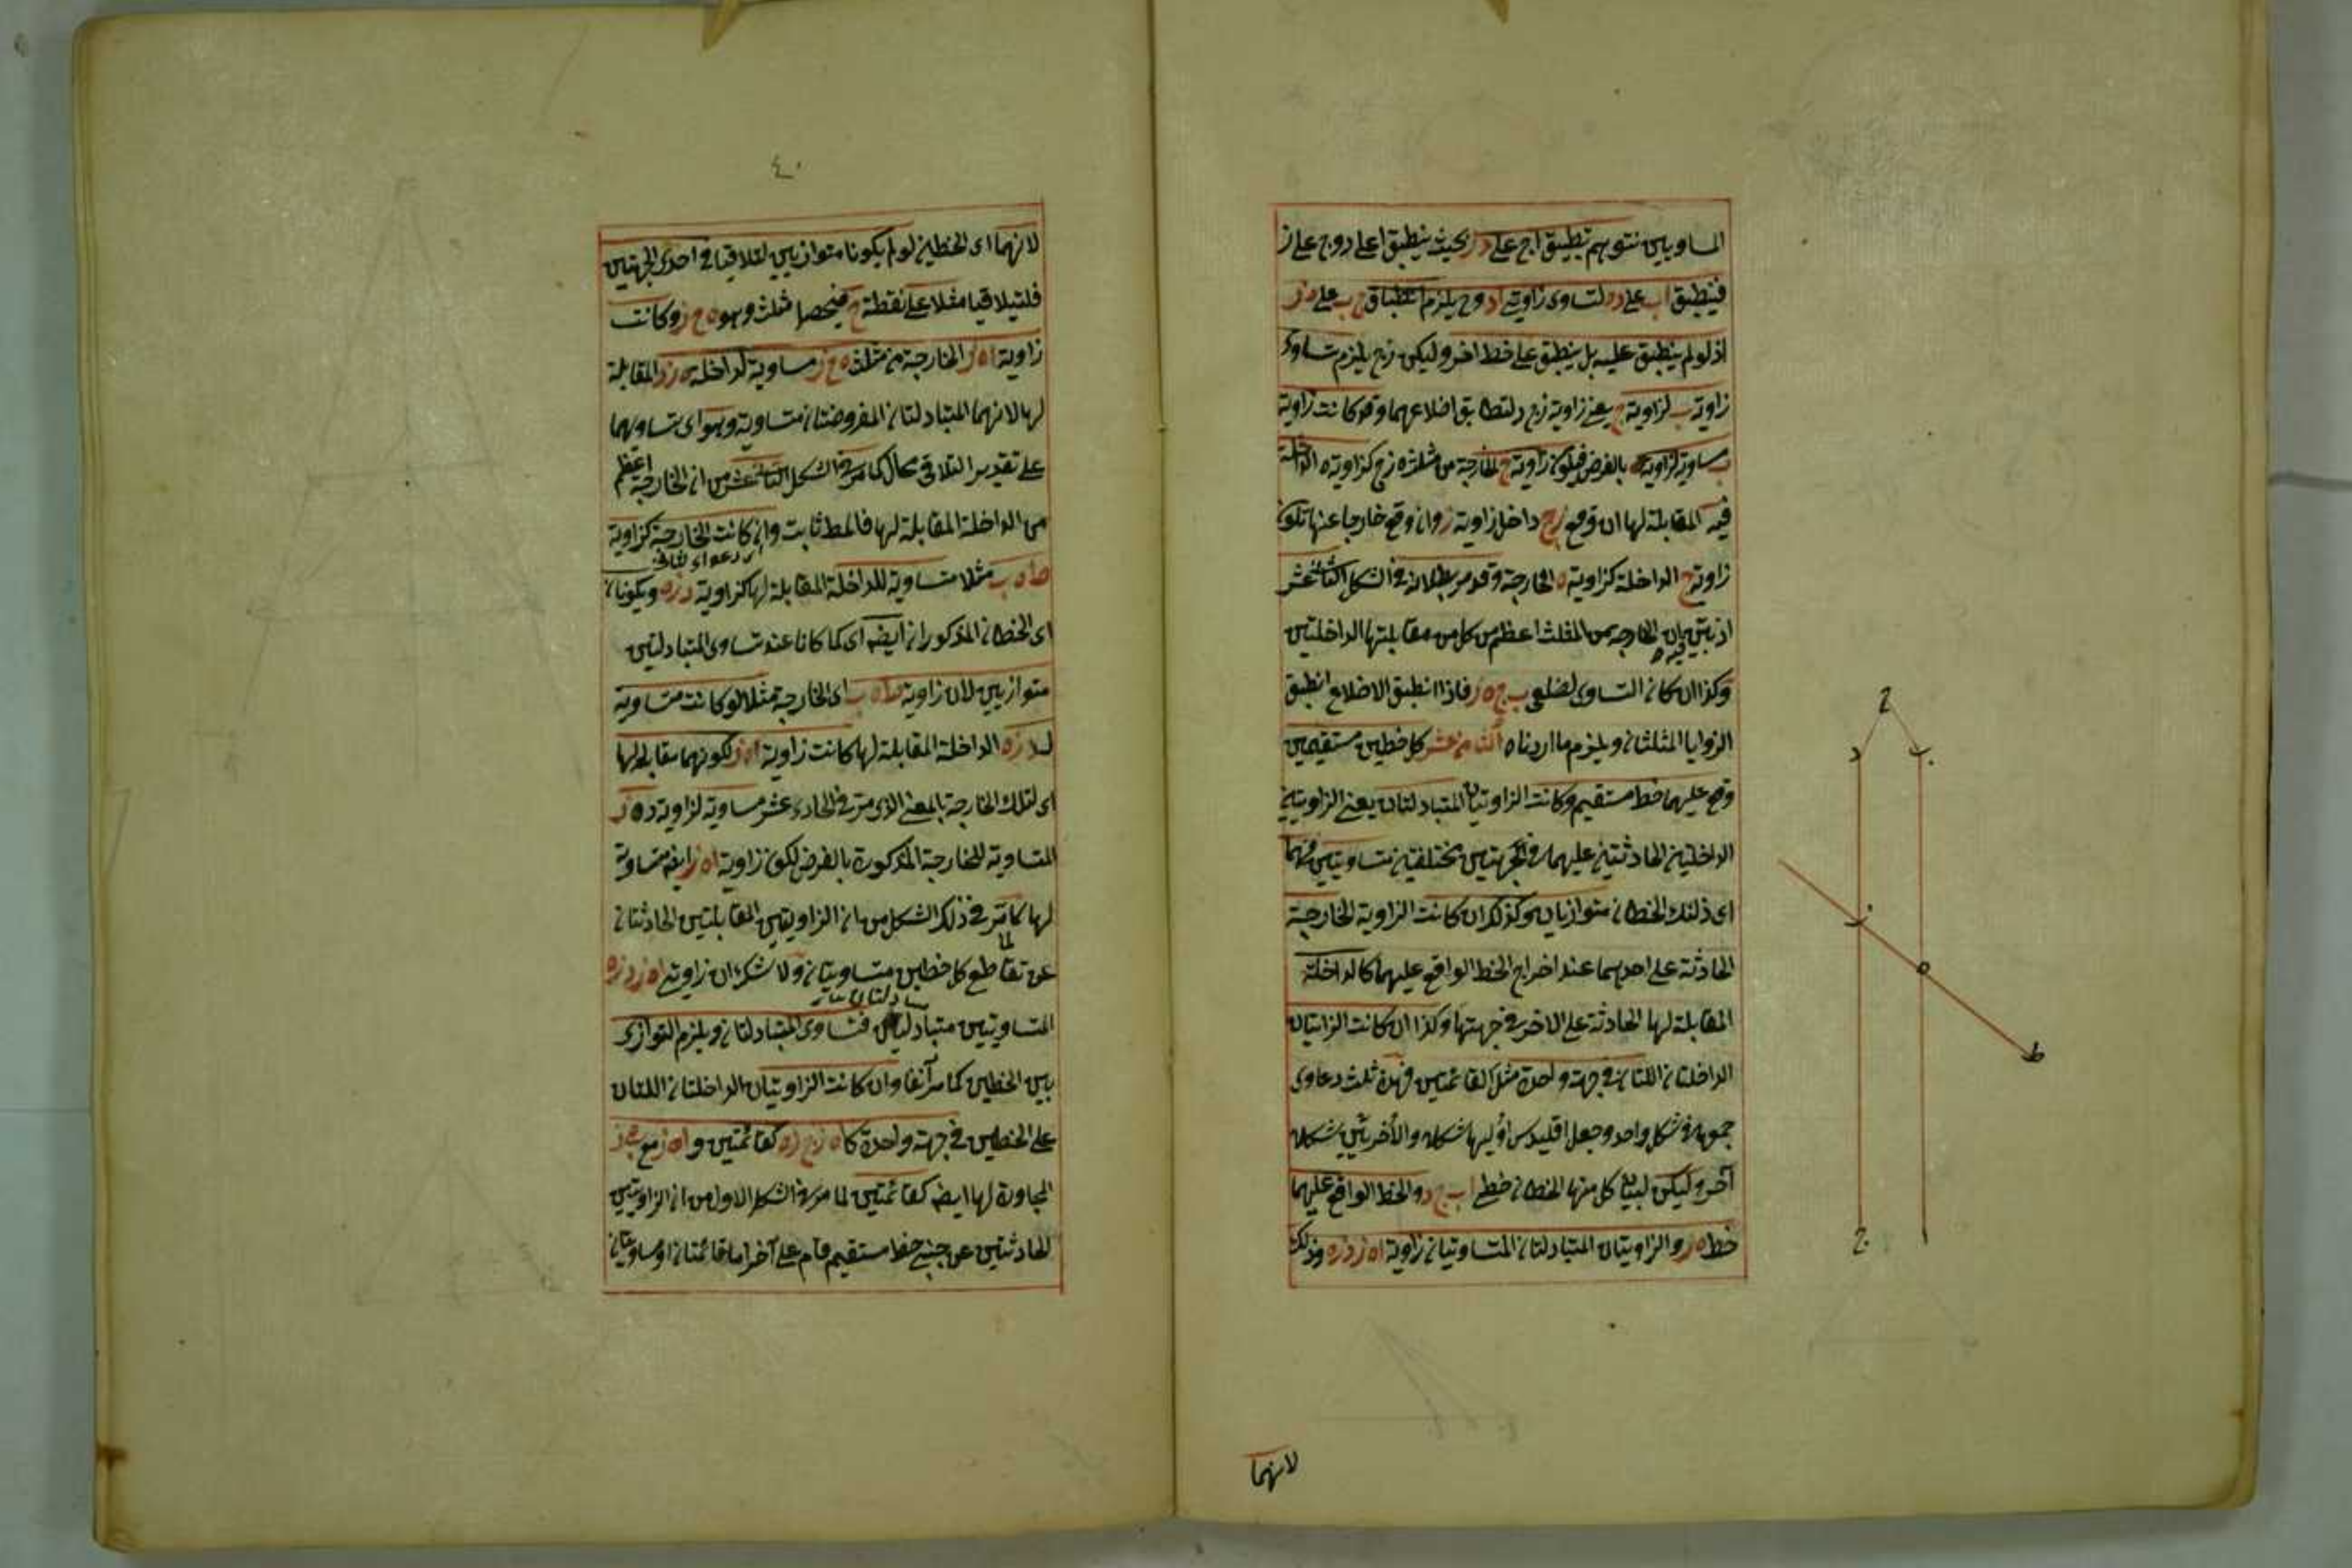 المساويين نتوهم تطبيق اج على در بحيث ينطبق ا على د وج على ز
فينطبق اب على ده لتساوى زاويتى اد وح يلزم انطباق ج ب على ه ز
اذ لو لم ينطبق عليه بل ينطبق على خط اخر وليكن زح يلزم تساوى
زاوية ب لزاوية ح يعنى زاوية زح د لتطابق اضلاعهما وقد كانت زاوية
ب مساوية لزاوية ه بالفرض فيكون زاوية ح الخارجة من مثلث ه زح كزاوية ه الداخلة
فيه المقابلة لها ان وقع زح داخل زاوية ز وان وقع خارجا عنها تكون
زاوية ح الداخلة كزاوية ه الخارجة وقد مر بطلانه فى الشكل الثانى عشر
اذ تبين فيه ان الخارجة من المثلث اعظم من كل من مقابلتيها الداخلتين
وكذا ان كان التساوى لضلعى ب ج ه ز فاذا انطبق الاضلاع انطبق
الزوايا المثلثان ويلزم ما اردناه الثامن عشر كل خطين مستقيمين
وقع عليهما خط مستقيم وكانت الزاويتان المتبادلتان يعنى الزاويتين
الداخلتين الحادثتين عليهما فى الجهتين مختلفتين متساويتين فهما
اى ذلنك الخطان متوازيان وكذلك ان كانت الزاوية الخارجة
الحادثة على احدهما عند اخراج الخط الواقع عليهما كالداخلة
المقابلة لها الحادثة على الاخر فى جهتها وكذا ان كانت الزاويتان
الداخلتان اللتان فى جهة واحدة مثل القائمتين فهذه ثلث دعاوى
جمعها فى شكل واحد وجعل اقليدس اوليها شكلا والأخريين شكلا
آخر وليكن لبيان كل منها الخطان خطى اب ج د والخط الواقع عليهما
خط ه ز والزاويتان المتبادلتان المتساويتان زاوية اه ز د ز ه وذلك
لانهما
ح
د
ب
ز
ه
ط
ج
ا
٤٠
لانهما اى الخطين لو لم يكونا متوازيين لتلاقيا فى احدى الجهتين
فلتيلاقيا مثلا على نقطة ح فيحصل مثلث وهو ه ح ز وكانت
زاوية اه ز الخارجة من مثلث ه ح ز مساوية لداخلة ه ز د المقابلة
لها لانهما المتبادلتان المفروضتان متساوية وهو اى تساويهما
على تقدير التلاقى محال كما مر فى الشكل الثانى عشر من ان الخارجة اعظم
من الداخلة المقابلة لها فالمط ثابت وان كانت الخارجة كزاوية
ط ه ب مثلا مساوية للداخلة المقابلة لها كزاوية د ز ه ويكونان
اى الخطان المذكوران ايضه اى كما كانا عند تساوى المتبادلتين
متوازيين لان زاوية ط ه ب اى الخارجة مثلا لو كانت متساوية
لد ز ه الداخلة المقابلة لها كانت زاوية اه ز لكونهما مقابلة لها
اى لتلك الخارجة بالمعنى الذى مر فى الحادى عشر مساوية لزاوية د ه ز
المتساوية للخارجة المذكورة بالفرض لكون زاوية اه ز ايضه متساوية
لها لما مر فى ذلك الشكل من ان الزاويتين المقابلتين الحادثتان
عن تقاطع كل خطين متساويتان ولا شك ان زاويتى اه ز د ز ه
المتساويتين متبادلتان فتساوى المتبادلتان ويلزم التوازى
بين الخطين كما مر آنفا وان كانت الزاويتان الداخلتان اللتان
على الخطين فى جهة واحدة كاه ز ج ز ه كقائمتين و اه ز مع
المجاورة لها ايضه كقائمتين لما مر فى الشكل الاول من ان الزاويتين
الحادثتين عن جنبى خط مستقيم قام على آخر اما قائمتان او مساويتان